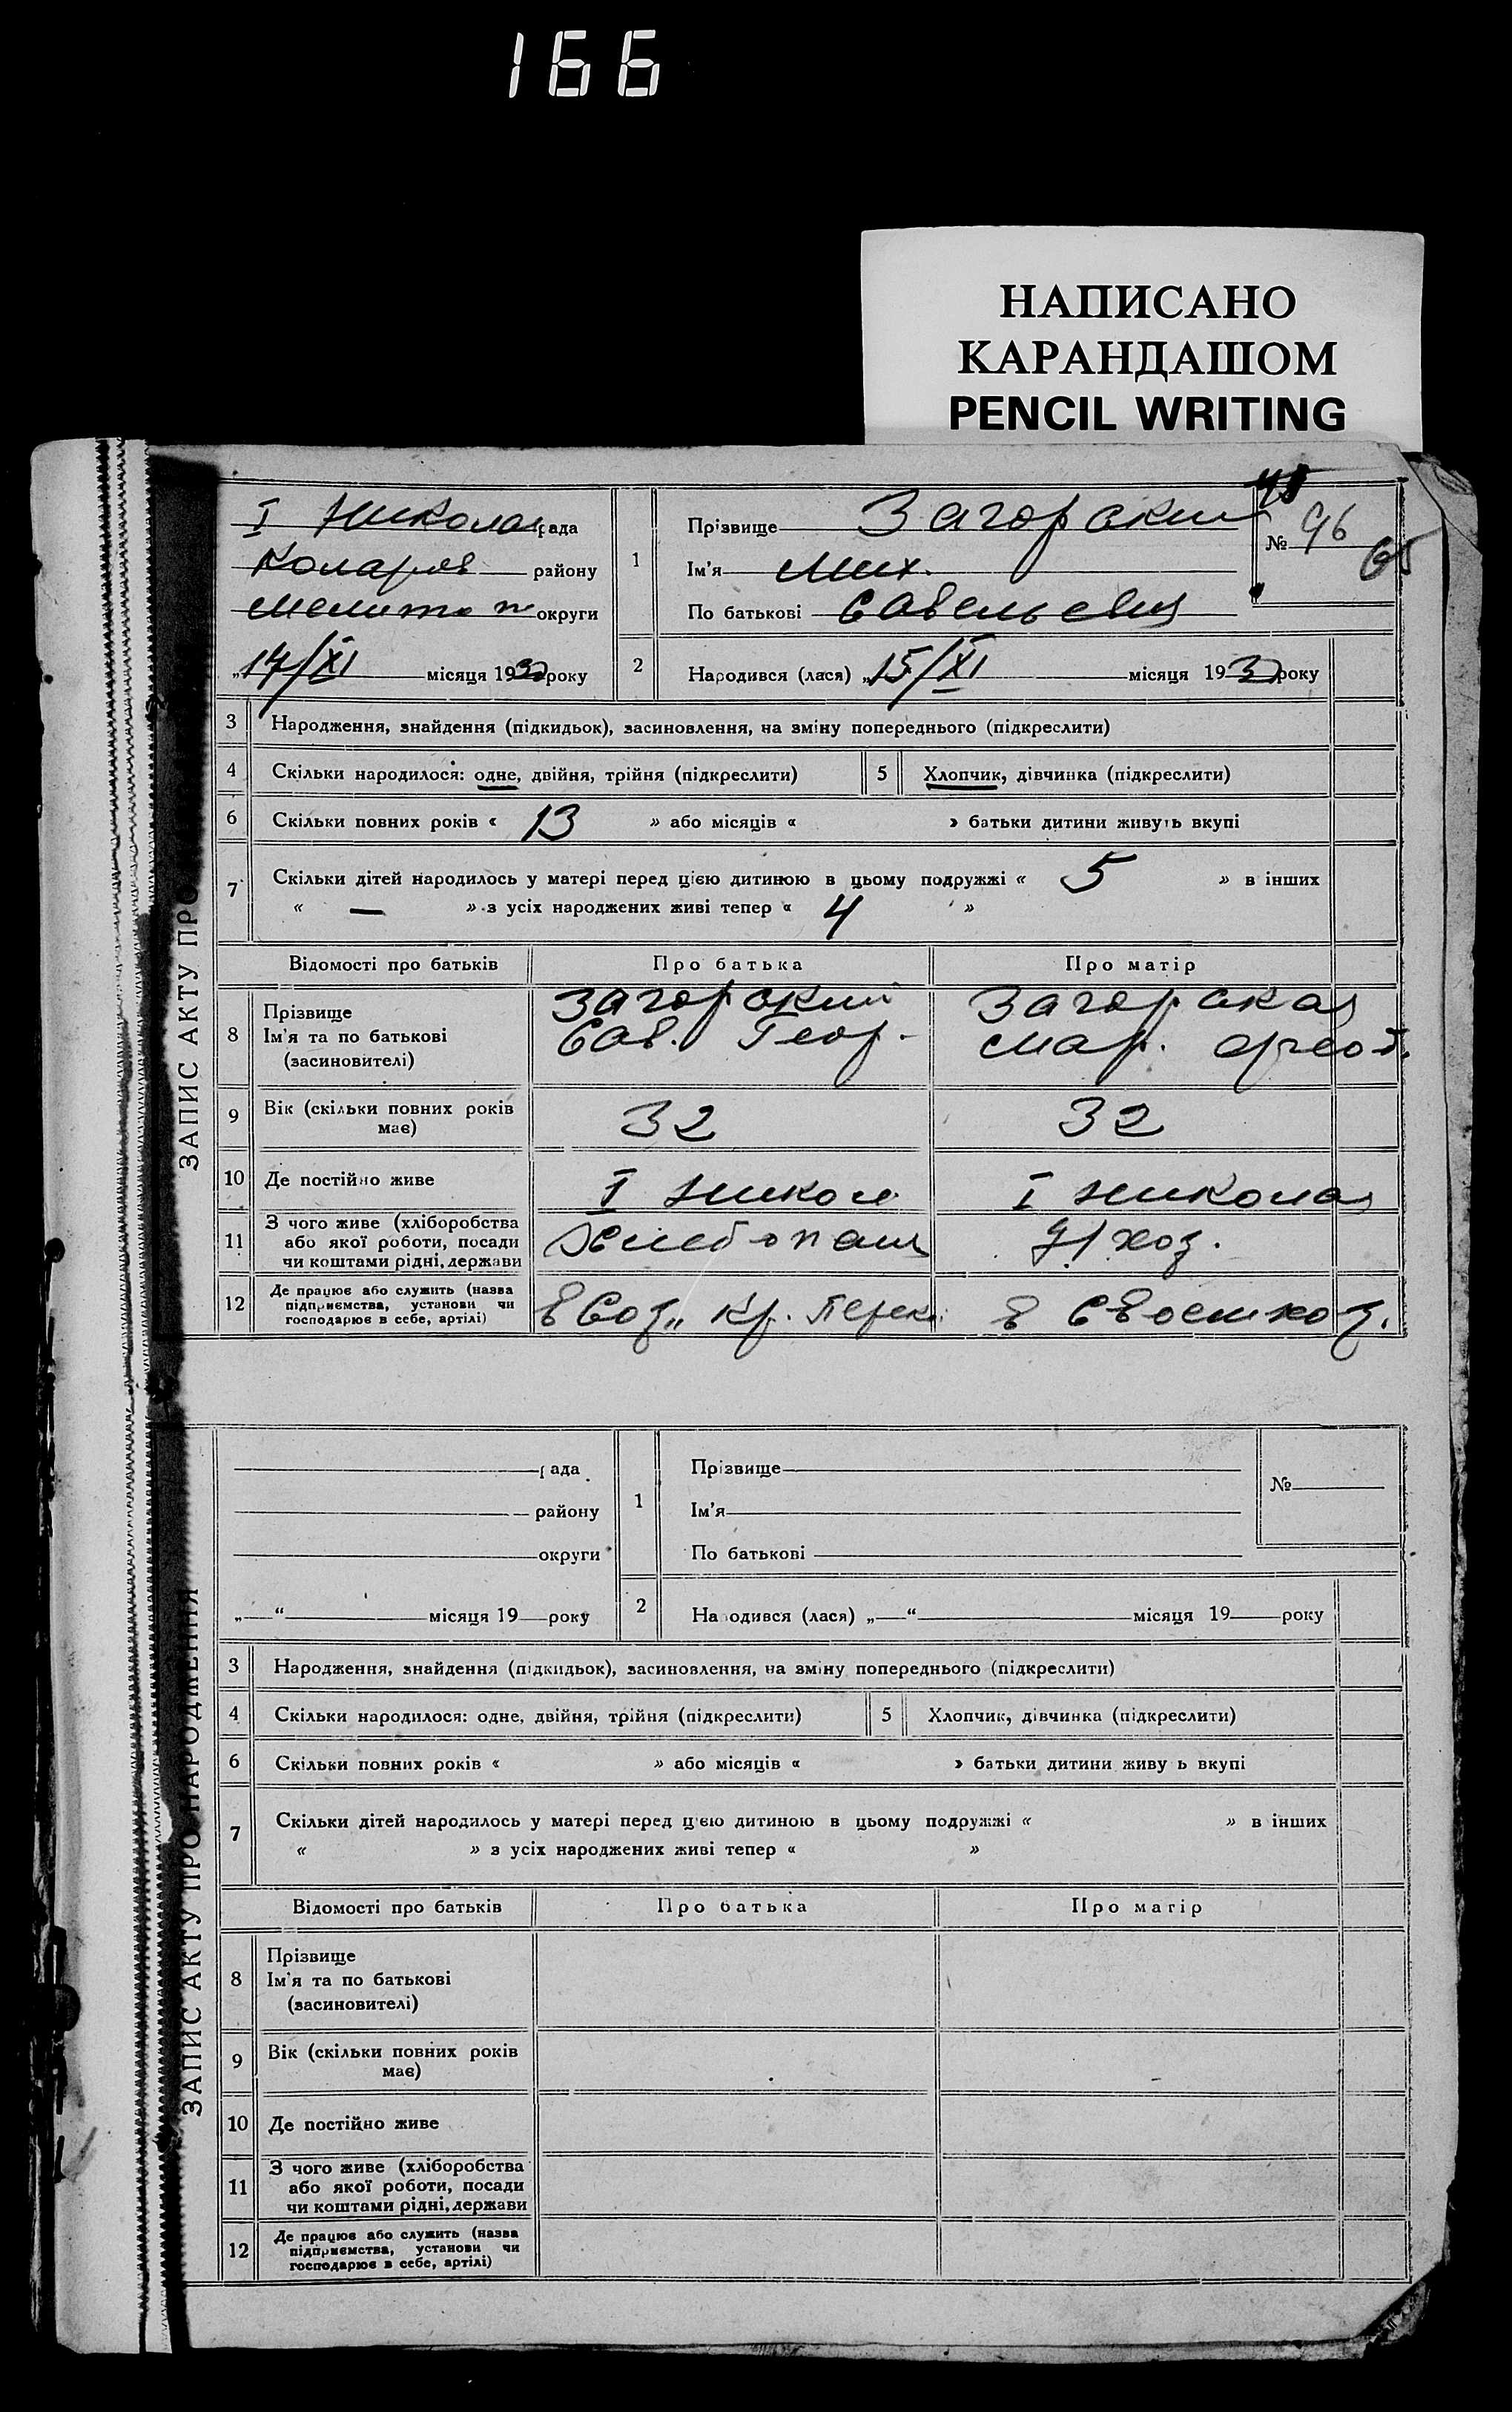 166
НАПИСАНО
КАРАНДАШОМ
PENCIL WRITING
ЗАПИС АКТУ ПРО
І Никола рада
Коларов району
Мелитоп округи
„17/XI місяця 1930 року
1
Прізвище Загорский
Ім'я Мих.
По батькові Савельевич
№ 96
65
2 Народився (лася) „15/XI місяця 1930 року
3 Народження, знайдення (підкидьок), засиновлення, на зміну попереднього (підкреслити)
4 Скільки народилося: одне, двійня, трійня (підкреслити) 5 Хлопчик, дівчинка (підкреслити)
6 Скільки повних років « 13 » або місяців « » батьки дитини живуть вкупі
7 Скільки дітей народилось у матері перед цією дитиною в цьому подружжі « 5 » в інших
« — » з усіх народжених живі тепер « 4 »
Відомості про батьків Про батька Про матір
8 Прізвище
Ім'я та по батькові
(засиновителі)
Загорский
Сав. Геор.
Загорская
Мар.
9 Вік (скільки повних років
має)
32 32
10 Де постійно живе І Никол І Никола
11 З чого живе (хліборобства
або якої роботи, посади
чи коштами рідні, держави
Хлебопаш
Д/хоз.
12 Де працює або служить (назва
підприємства, установи чи
господарює в себе, артілі)
в Соз„ Кр. Перек.
в Своем хоз.
ЗАПИС АКТУ ПРО НАРОДЖЕННЯ
рада
району
округи
„ “ місяця 19 року
1
Прізвище
Ім'я
По батькові
№
2 Народився (лася) „ “ місяця 19 року
3 Народження, знайдення (підкидьок), засиновлення, на зміну попереднього (підкреслити)
4 Скільки народилося: одне, двійня, трійня (підкреслити) 5 Хлопчик, дівчинка (підкреслити)
6 Скільки повних років « » або місяців « » батьки дитини живу ь вкупі
7 Скільки дітей народилось у матері перед цією дитиною в цьому подружжі « » в інших
« » з усіх народжених живі тепер « »
Відомості про батьків Про батька Про матір
8 Прізвище
Ім'я та по батькові
(засиновителі)
9 Вік (скільки повних років
має)
10 Де постійно живе
11 З чого живе (хліборобства
або якої роботи, посади
чи коштами рідні, держави
12 Де працює або служить (назва
підприємства, установи чи
господарює в себе, артілі)